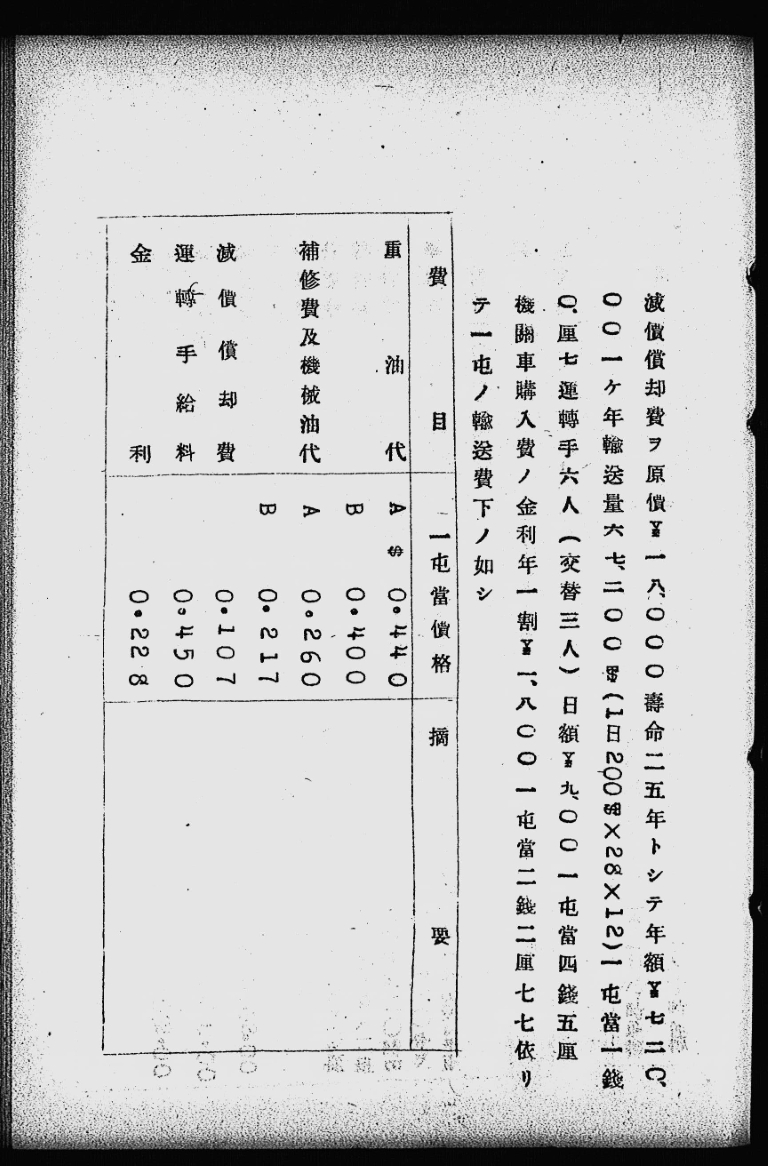 減價償却費ヲ原價¥一八、〇〇〇壽命二五年トシテ年額¥七二〇、
〇〇一ケ年輸送量六七、二〇〇屯(1日200屯×28×12)一屯當一錢
〇、厘七運轉手六人(交替三人)日額¥九、〇〇一屯當四錢五厘
機關車購入費ノ金利年一割¥一、八〇〇一屯當二錢二厘七七依リ
テ一屯ノ輸送費下ノ如シ
費目 一屯當價格 摘要
重油代 A $ 0.440
B 0.400
補修費及機械油代 A 0.260
B 0.217
減價償却費 0.107
運轉手給料 0.450
金利 0.228